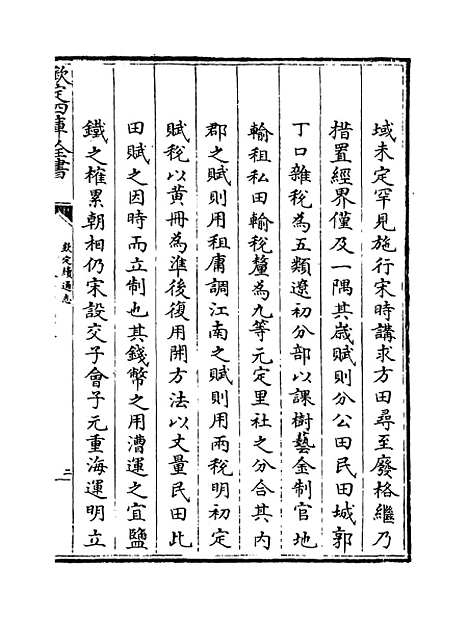 域未定罕見施行宋時講求方田尋至廢格繼乃
措置經界僅及一隅其歲賦則分公田民田城郭
丁口雜稅為五類遼初分部以課樹藝金制官地
輸租私田輸稅釐為九等元定里社之分合其内
郡之賦則用租庸調江南之賦則用兩稅明初定
賦稅以黄冊為準後復用開方法以丈量民田此
田賦之因時而立制也其錢幣之用漕運之宜鹽
鐵之榷累朝相仍宋設交子會子元重海運明立
欽定四庫全書
欽定續通志
二